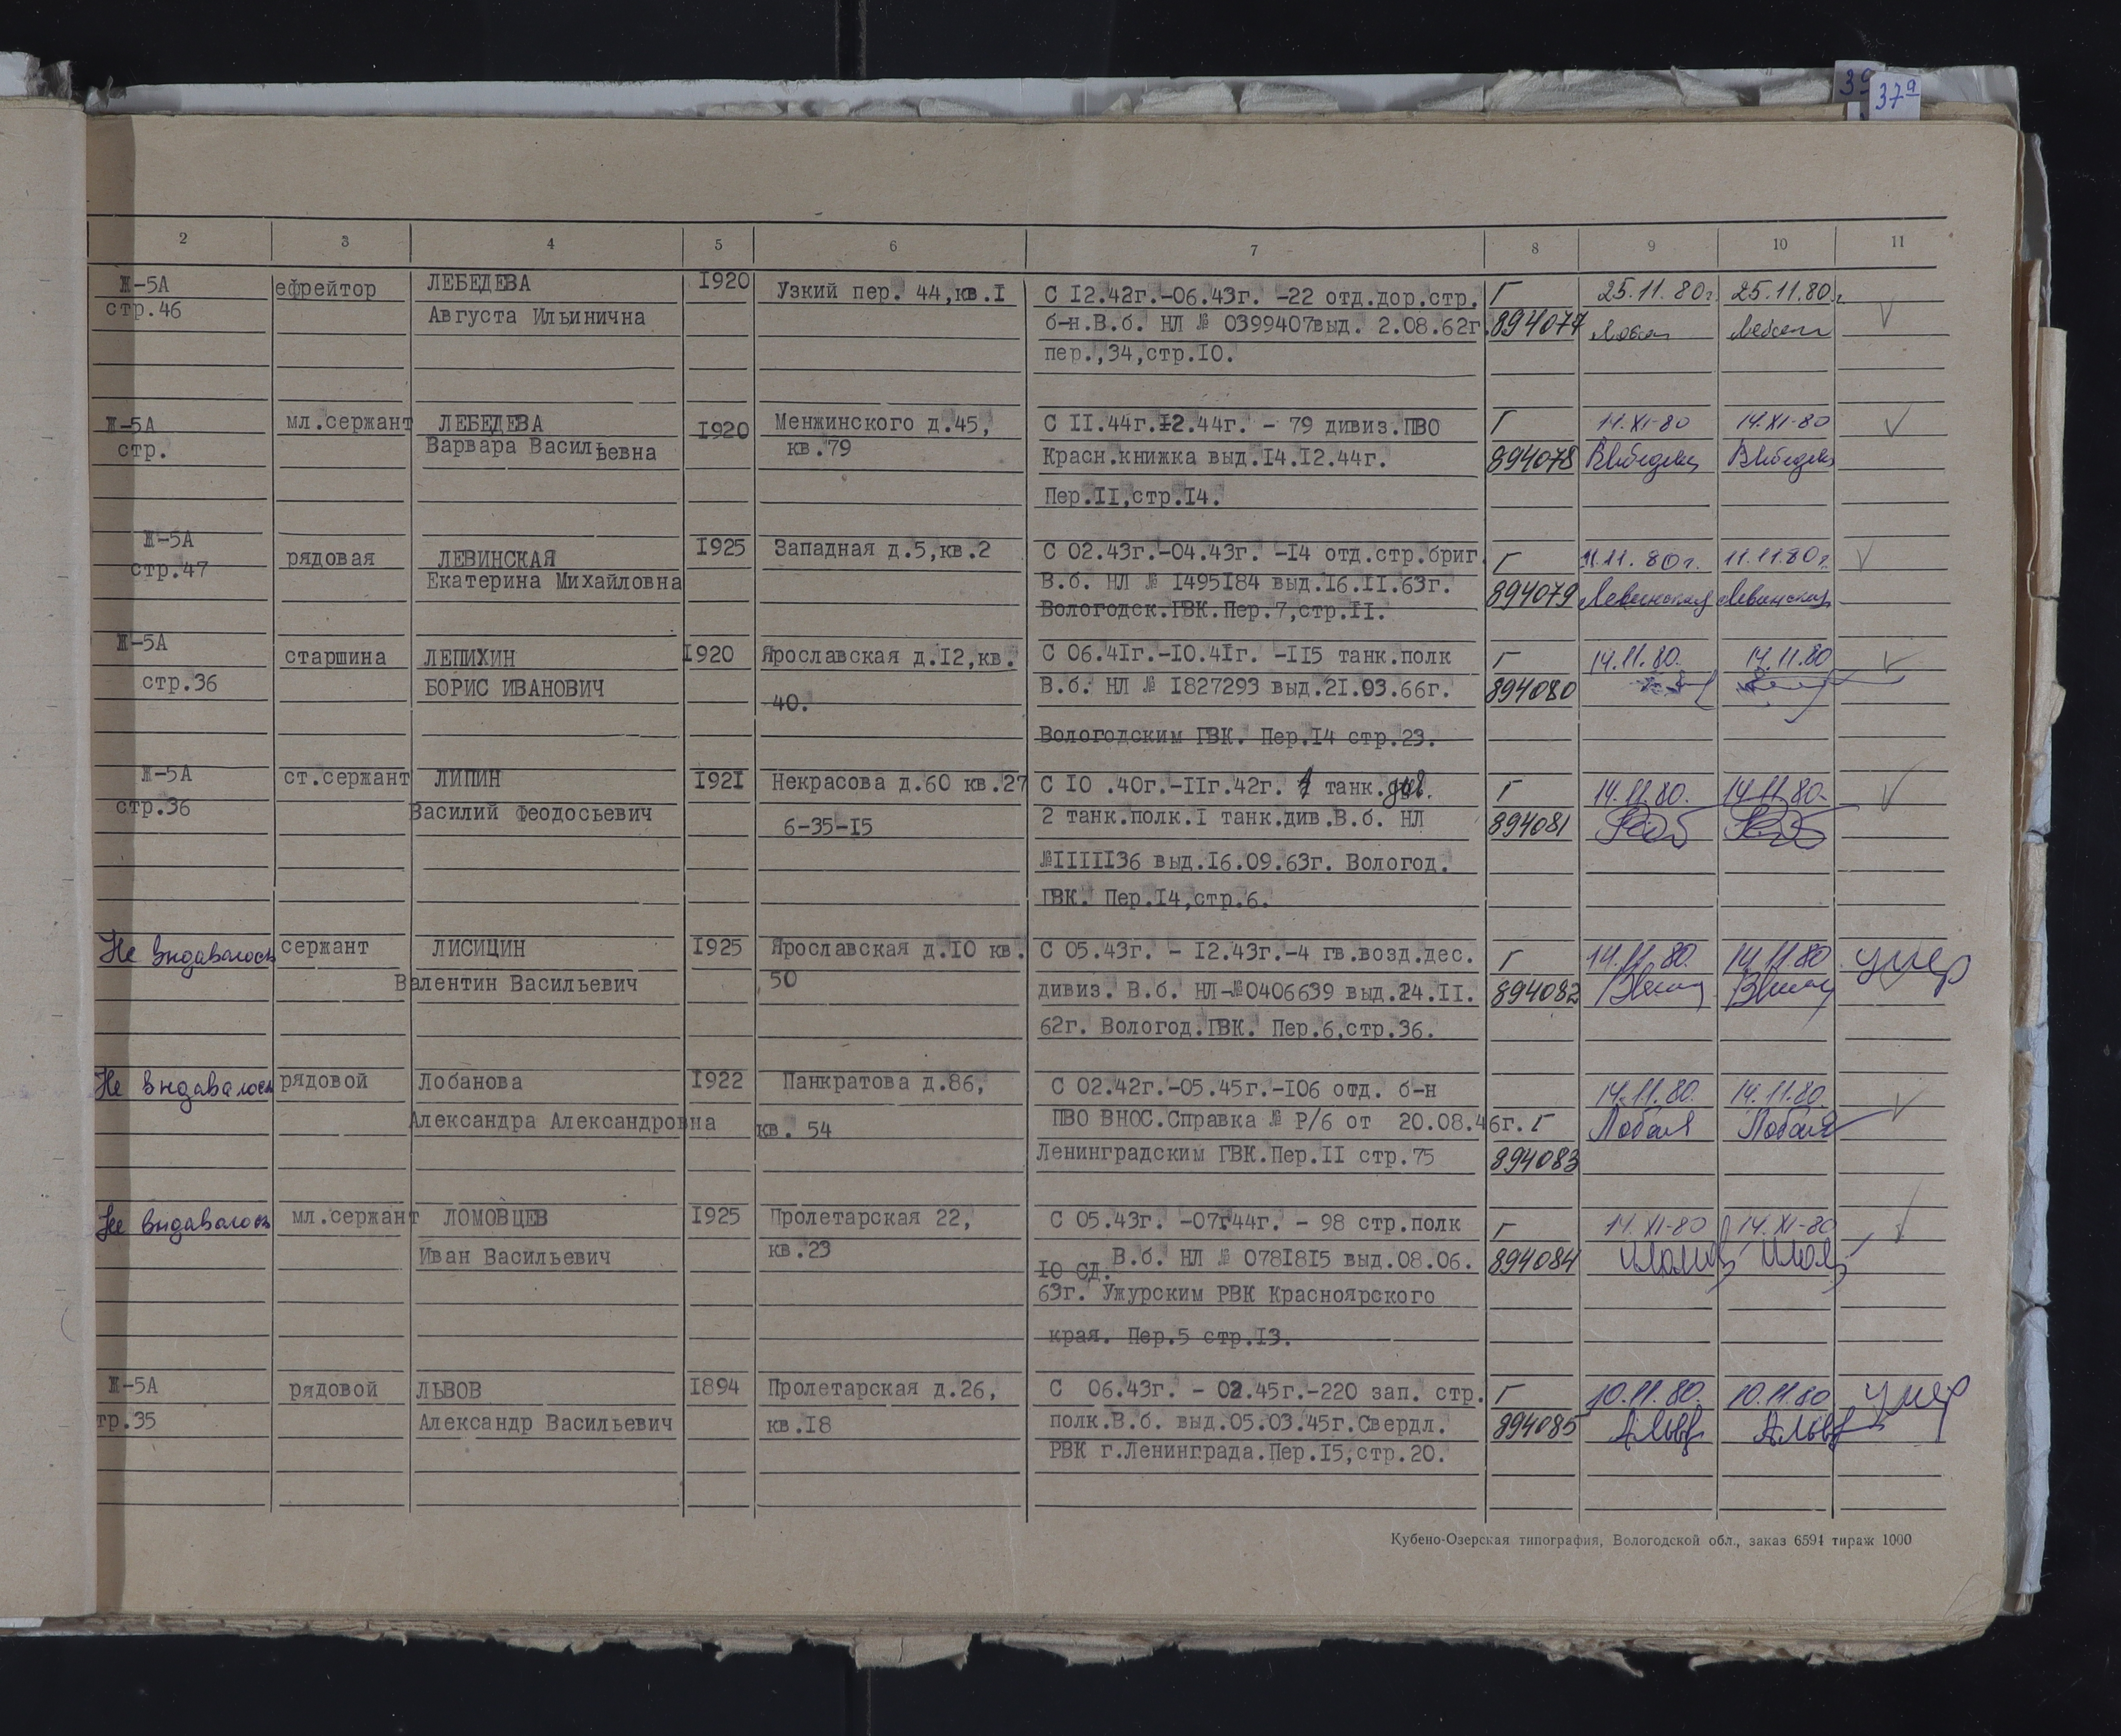 39 37а
2 3 4 5 6 7 8 9 10 11
Ж-5А ефрейтор ЛЕБЕДЕВА 1920 Узкий пер. 44,кв.1 С 12.42г.-06.43г. -22 отд.дор.стр. Г 25.11.80г. 25.11.80г.
стр.46 Августа Ильинична б-н.В.б. НЛ № 0399407выд. 2.08.62г. 894077
пер.,34,стр.10.
Ж-5А мл.сержант ЛЕБЕДЕВА 1920 Менжинского д.45, С 11.44г.12.44г. - 79 дивиз.ПВО Г 14.XI-80 14.XI-80
стр. Варвара Васильевна кв.79 Красн.книжка выд.14.12.44г. 894078 ВЛебедева ВЛебедева
Пер.11,стр.14.
Ж-5А рядовая ЛЕВИНСКАЯ 1925 Западная д.5,кв.2 С 02.43г.-04.43г. -14 отд.стр.бриг. Г 11.11.80г. 11.11.80г.
стр.47 Екатерина Михайловна В.б. НЛ № 1495184 выд.16.11.63г. 894079 Левинская Левинская
Вологодск.ГВК.Пер.7,стр.11.
Ж-5А старшина ЛЕПИХИН 1920 Ярославская д.12,кв. С 06.41г.-10.41г. -115 танк.полк Г 14.11.80. 14.11.80
стр.36 БОРИС ИВАНОВИЧ 40. В.б. НЛ № 1827293 выд.21.03.66г. 894080
Вологодским ГВК. Пер.14 стр.23.
Ж-5А ст.сержант ЛИПИН 1921 Некрасова д.60 кв.27 С 10 .40г.-11г.42г. 1 танк.див. Г 14.11.80. 14.11.80.
стр.36 Василий Феодосьевич 6-35-15 2 танк.полк.1 танк.див.В.б. НЛ 894081
№1111136 выд.16.09.63г. Вологод.
ГВК. Пер.14,стр.6.
Не выдавалось сержант ЛИСИЦИН 1925 Ярославская д.10 кв. С 05.43г. - 12.43г.-4 гв.возд.дес. Г 14.11.80. 14.11.80 умер
Валентин Васильевич 50 дивиз. В.б. НЛ-№0406639 выд.24.11. 894082
62г. Вологод.ГВК. Пер.6,стр.36.
Не выдавалось рядовой Лобанова 1922 Панкратова д.86, С 02.42г.-05.45г.-106 отд. б-н 14.11.80. 14.11.80.
Александра Александровна кв. 54 ПВО ВНОС.Справка № Р/6 от 20.08.46г. Г
Ленинградским ГВК.Пер.11 стр.75 894083
Не выдавалось мл.сержант ЛОМОВЦЕВ 1925 Пролетарская 22, С 05.43г. -07г44г. - 98 стр.полк Г 14.XI-80 14.XI-80
Иван Васильевич кв.23 10 СД. В.б. НЛ № 0781815 выд.08.06. 894084
63г. Ужурским РВК Красноярского
края. Пер.5 стр.13.
Ж-5А рядовой ЛЬВОВ 1894 Пролетарская д.26, С 06.43г. - 02.45г.-220 зап. стр. Г 10.11.80. 10.11.80 умер
тр.35 Александр Васильевич кв.18 полк.В.б. выд.05.03.45г.Свердл. 894085 АЛьв АЛьв
РВК г.Ленинграда.Пер.15,стр.20.
Кубено-Озерская типография, Вологодской обл., заказ 6591 тираж 1000